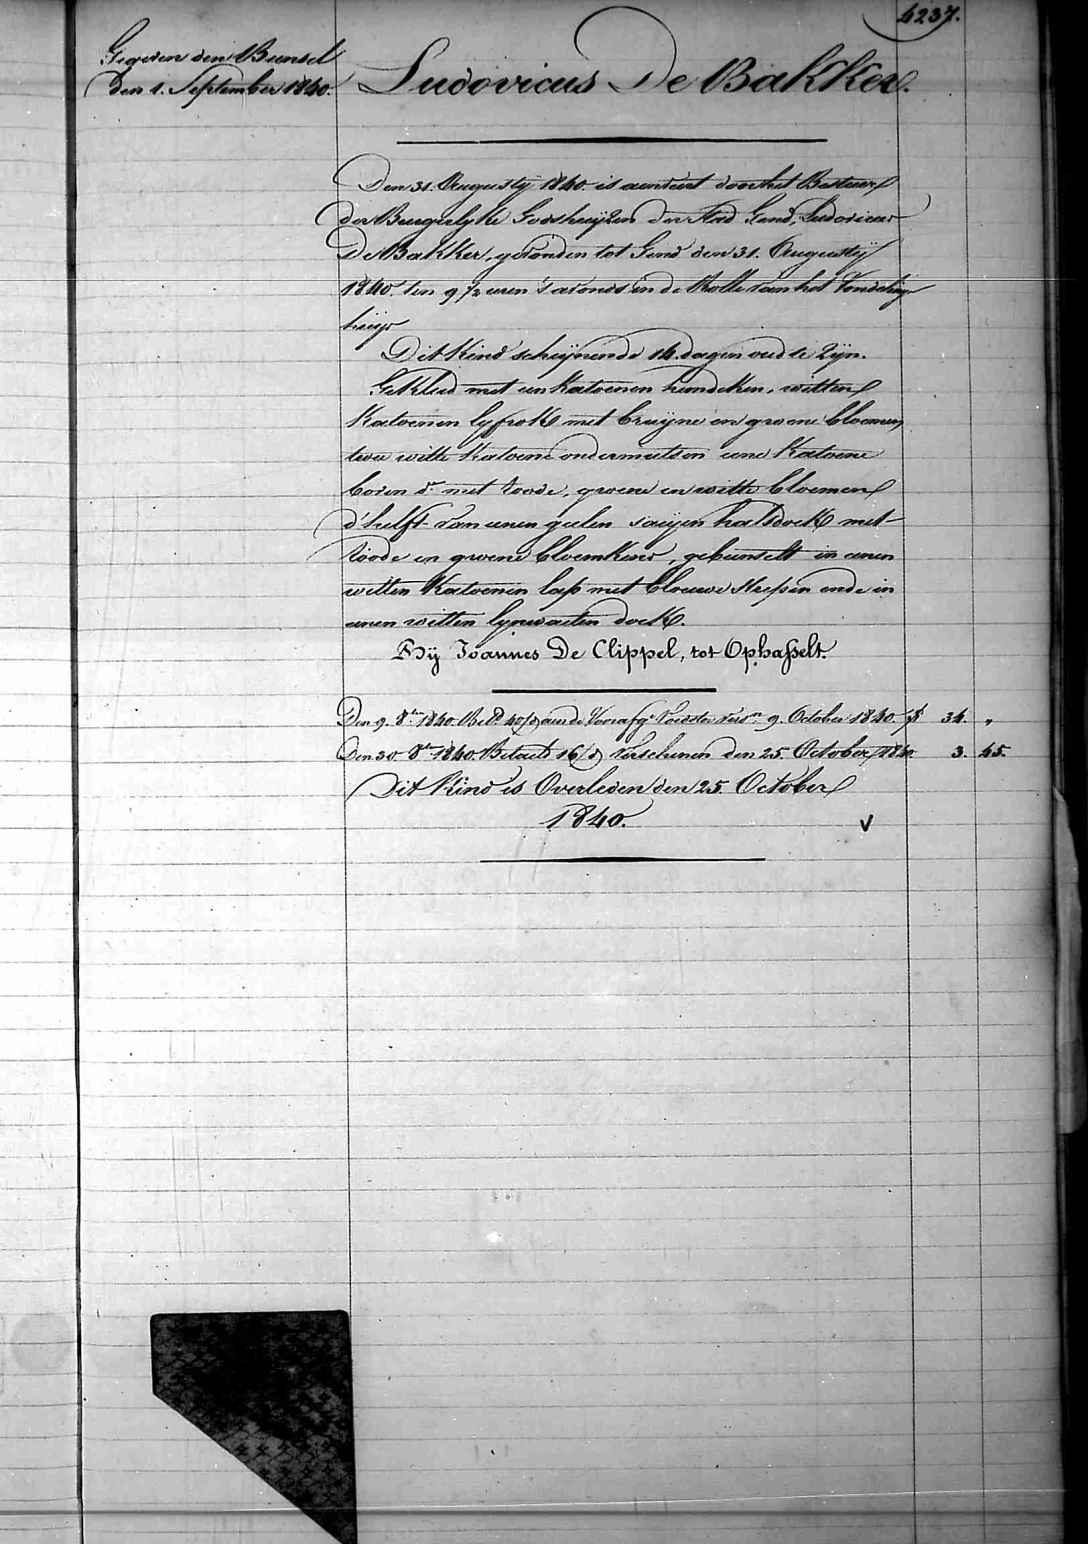 4237.
Gegeven den Bunsel
den 1. September 1840.
Ludovicus De Bakker.
Den 31. Augusty 1840 is aenveirt door het Bestuer
der Burgerlyke Godshuijzen der Stad Gend, Ludovicus
De Bakker, gevonden tot Gend den 31. Augusty
1840 ten 9 ½ uren 's avonds in de Rolle van het Vondeling
huijs
Dit Kind schijnende 14. dagen oud te Zijn.
Gekleed met een Katoenen hemdeken, witten
Katoenen lyfrok met bruijne en groene bloemen,
twee witte Katoene ondermutsen eene Katoene
boven dº met roode, groene en witte bloemen
d'helft van eenen geelen saeijen halsdoek met
roode en groene bloemkens, gebunselt in eenen
witten Katoenen lap met blauwe strepen ende in
eenen witten lynwaeten doek.
Bij Joannes De Clippel, tot Ophasselt.
Den 9. 8ber 1840. Betd 40/d aen de Voorafge Voedster versn 9. October 1840. f 34. "
Den 30. 8br 1840. Betaeld 16/d verschenen den 25. October 1840. 3. 45.
Dit Kind is Overleden den 25. October
1840.